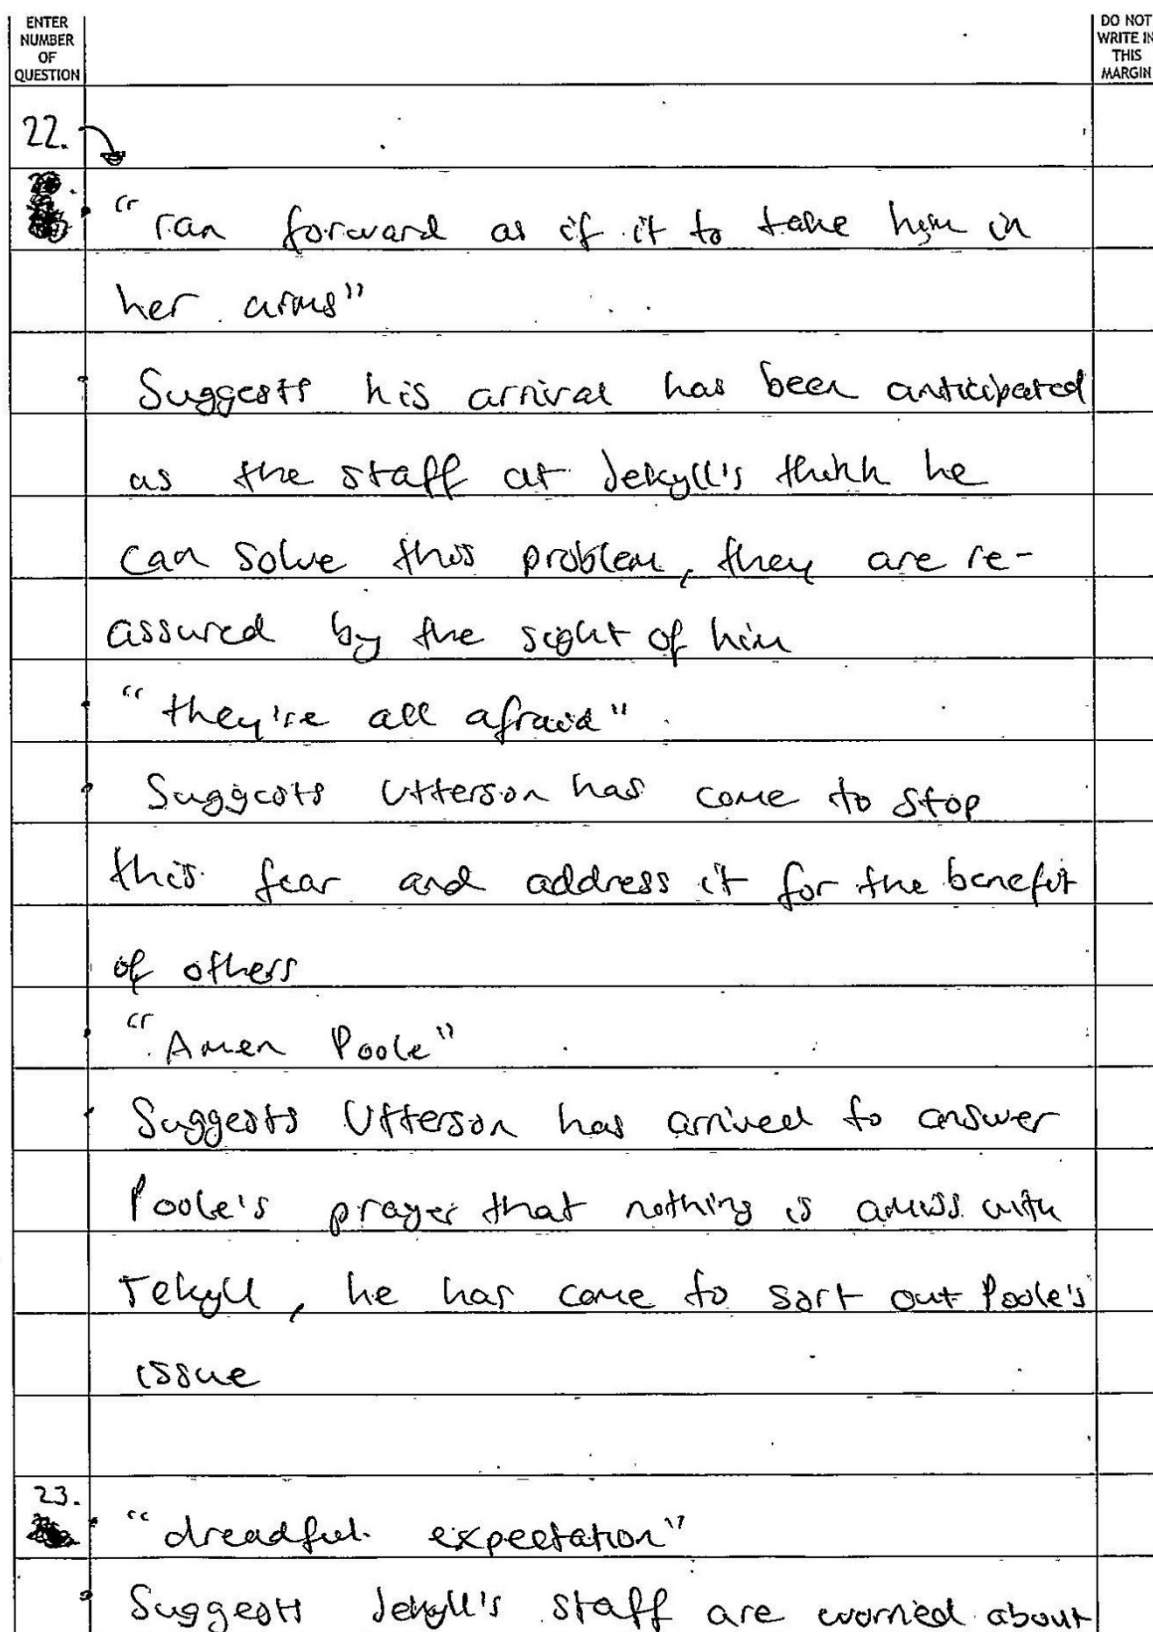 ENTER
NUMBER
OF
QUESTION
DO NOT
WRITE IN
THIS
MARGIN
22.
"ran forward as if it to take him in
her arms"
Suggests his arrival has been anticipated
as the staff at Jekyll's think he
can solve this problem, they are re-
assured by the sight of him
"they're all afraid"
Suggests Utterson has come to stop
this fear and address it for the benefit
of others
"Amen Poole"
Suggests Utterson has arrived to answer
Poole's prayer that nothing is amiss with
Jekyll, he has come to sort out Poole's
issue
23.
"dreadful expectation"
Suggests Jekyll's staff are worried about